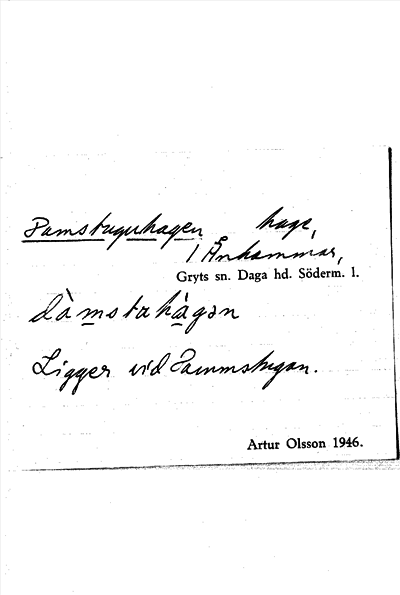 Damstuguhagen hage,
1 Änhammar,
Gryts sn. Daga hd. Söderm. l.
dàmstahàgən
Ligger vid Dammstugan.
Artur Olsson 1946.